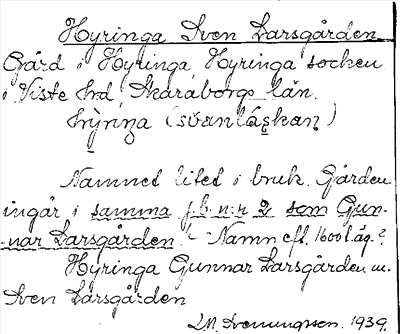 Hyringa Sven Larsgården
Gård i Hyringa, Hyringa socken
i Viste hrd, Skaraborgs län.
hrỳnga (svanláskaɳ)
Namnet litet i bruk. Gården
ingår i samma j.b.n:r 2 som Gun-
nar Larsgården. Namn eft. 1600 t. äg.?
Hyringa Gunnar Larsgården u.
Sven Larsgården
Svenungsson. 1939.